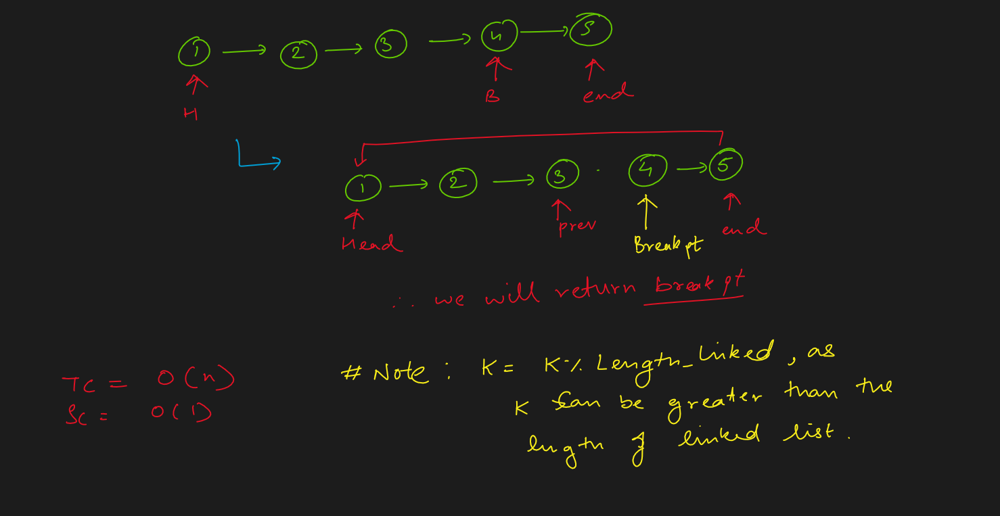 1 2 3 4 5
H B end
1 2 3 4 5
Head prev Breakpt end
∴ we will return breakpt
# Note : K = K % Length_linked , as
K can be greater than the
length of linked list .
TC = O(n)
SC = O(1)